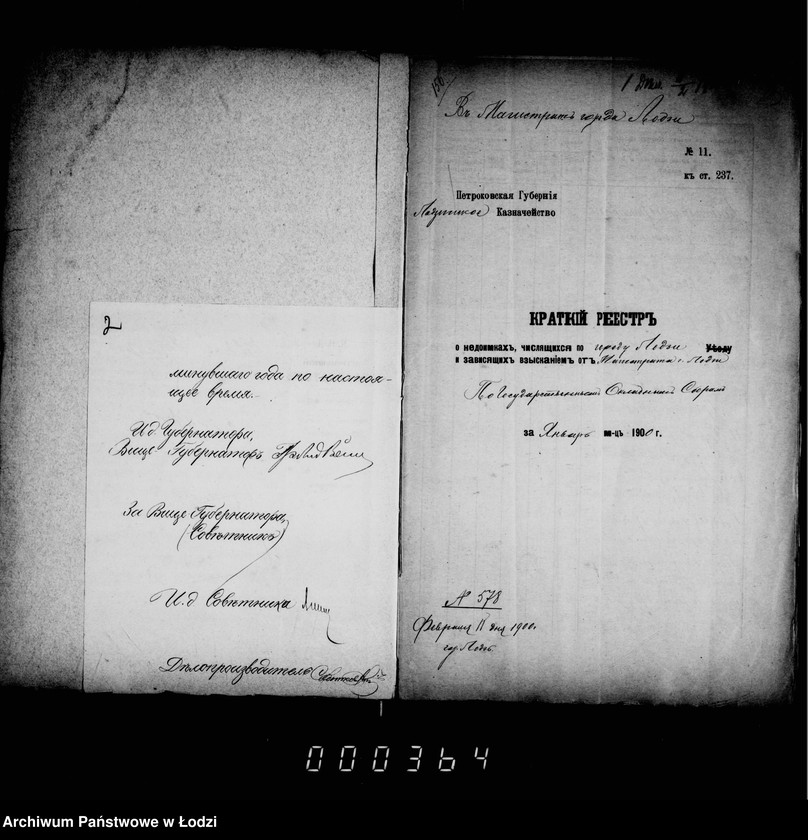 2
минувшаго года по настоя-
щее время.
И.д. Губернатора,
Вице Губернаторъ
За Вице Губернатора,
(Совѣтникъ)
И.д. Совѣтника
Дѣлопроизводитель
150
Въ Магистратъ города Лодзи
№ 11.
къ ст. 237.
Петроковская Губернія
Лодзинское Казначейство
КРАТКІЙ РЕЕСТРЪ
о недоимкахъ, числящихся по городу Лодзи Уѣзду
и зависящихъ взысканіемъ отъ Магистрата г. Лодзи
По Государственнымъ Окладнымъ Сборамъ
за Январь м-цъ 1900 г.
№ 578
Февраля 11 дня 1900 г.
гор. Лодзь.
000364
Archiwum Państwowe w Łodzi